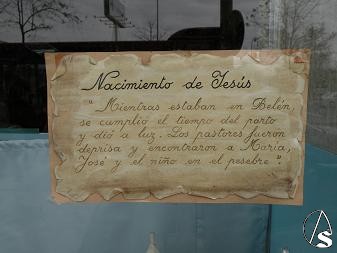 Nacimiento de Jesús
"Mientras estaban en Belén,
se cumplió el tiempo del parto
y dió a luz. Los pastores fueron
deprisa y encontraron a María,
José y el niño en el pesebre".